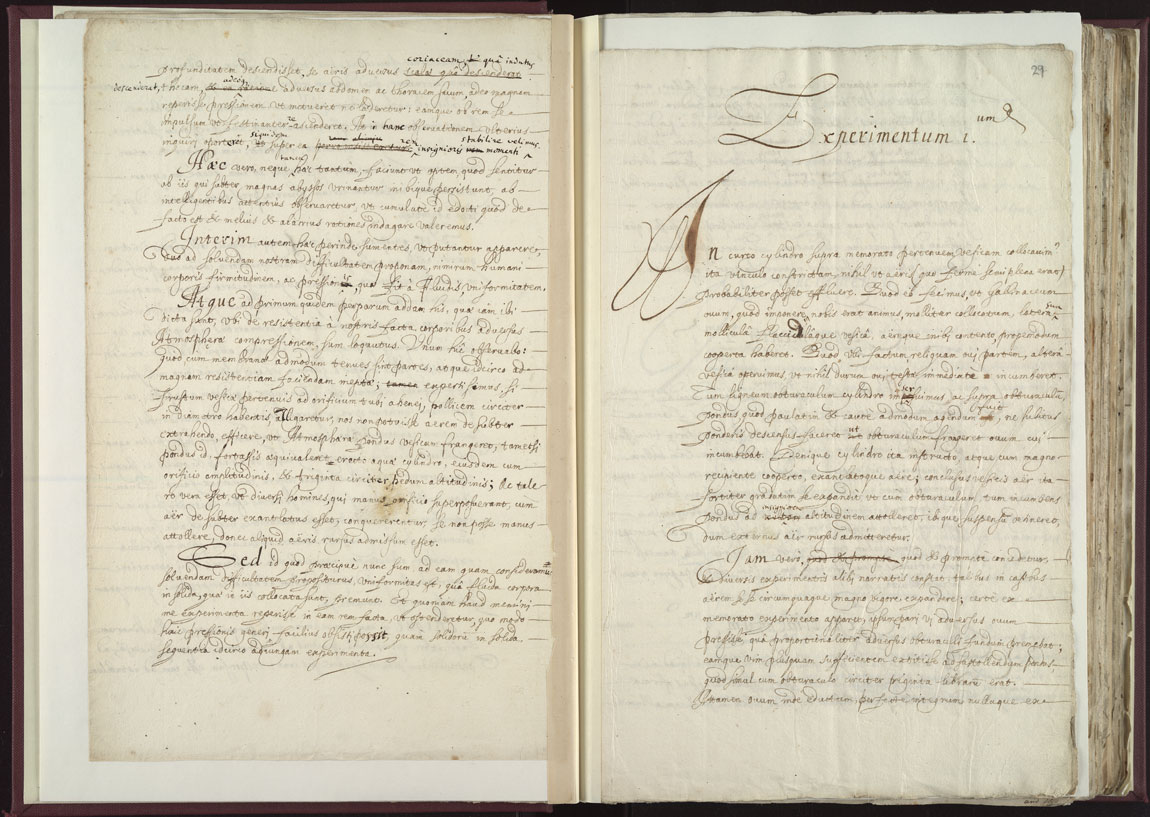 coriaceam, quâ indutus
profunditatem descendisset, se aëris adversus scalas quâ descenderat
descenderat, thecam, adeoq; adversus abdomen ac thoracem suum, adeo magnam
reperisse pressionem, ut metueret ne læderetur; eamque ob rem se
impulsum ut festinantere ascenderet. hanc observationem ulterius
siquidem stabilire velimus.
inquiri oporteret, super ea rem insignioris momenti
Hæc vero, neque tantum, faciunt ut optem, quod sentitur
ab iis qui subter magnas abyssos urinantur, ibique persistunt, ab
intelligentibus attentius observaretur, ut cumulate id edocti quod de
facto est & melius & alacrius rationes indagare valeremus.
Interim autem hæc perinde sumentes, ut putantur apparere,
ad solvendam nostram difficultatem proponam, nimirum humani
corporis firmitudinem, ac pressionis, quæ fit a fluidis uniformitatem.
Atque ad primum quidem perparum addam his, quæ jam ibi
dicta sunt, ubi de resistentia à nostris facta corporibus adversus
Atmosphæræ compressionem, sum loquutus. Unum hic observabo:
quod cum membranæ admodum tenues sint partes, atque idcirco ad
magnam resistentiam faciendam ineptæ; tamen experti sumus si
frustum vesicæ pertenuis ad orificium tubi ahenei, pollicem circiter
in diametro habentis, alligaretur, nos non potuisse aerem de subter
extrahendo, efficere, ut Atmosphæræ pondus vesicam frangeret, tametsi
pondus id, fortassis æquivaleret erecto aquæ cylindro, ejusdem cum
orificio amplitudinis, & triginta circiter pedum altitudinis; Ac tale
ut diversi homines, qui manus orificio superposuerant, cum
aër de subter exantlatus esset, conquererentur, se non posse manus
attollere, donec aliquid aëris rursus admissum esset.
Sed id quod præcipue nunc sum ad eam quam consideravimus
solvendam difficultatem propositurus, uniformitas est, quâ fluida corpora
in solida, quæ in iis collocata sunt, premunt. Et quoniam haud memini
me experimenta reperisse in eam rem facta, ut ostenderetur, quo modo
huic pressionis generi facilius obsisti possit, quam solidorum in solida
sequentia idcirco adjungam experimenta.
29
Experimentum 1.um
In curto cylindro supra memorato pertenuem vesicam collocavimus
ita vinculo constrictam, nihil ut aëris quo ferme semiplena erat
probabiliter posset effluere. Quod eo fecimus, ut gallinaceum
ovum, quod imponere nobis erat animus, molliter collocatum, latera sua
mollicula flaccidaque vesicâ, aëreque inibi contento, propemodum
cooperta haberet. Quod ubi factum, reliquam ovi partem, alterâ
vesicâ operuimus, ut nihil durum testæ immediate incumberet.
Tum ligneum obturaculum cylindro inseruimus, ac supra obturaculum
pondus quod paulatim & cautè admodum agendum fuit, ne subitus
ponderis descensus faceret ut obturaculum frangeret ovum cui
incumbebat. Denique cylindro ita instructo, atque cum magno
recipiente cooperto, exantlatoque aëre; conclusus vesicis aër ita
fortiter gradatim se expandit ut cum obturaculum, tum incumbens
pondus ad insignior altitudinem attolleret, ibique suspensum retineret,
dum externus aër rursus admitteretur.
Jam vero, quod
diversis experimentis alibi narratis constat, talibus in casibus
aërem circumquaque magno vigore expandere; certe ex
memorato experimento apparet, ipsum pari vi adversus ovum
pressisse, quâ proportionaliter adversus obturaculi fundum premebat;
eamque vim plusquam sufficientem extitisse ad sustollendum pondus,
quod simul cum obturaculo circiter triginta librarum erat.
Attamen ovum inde eductum, perfecte integrum nullaque exa